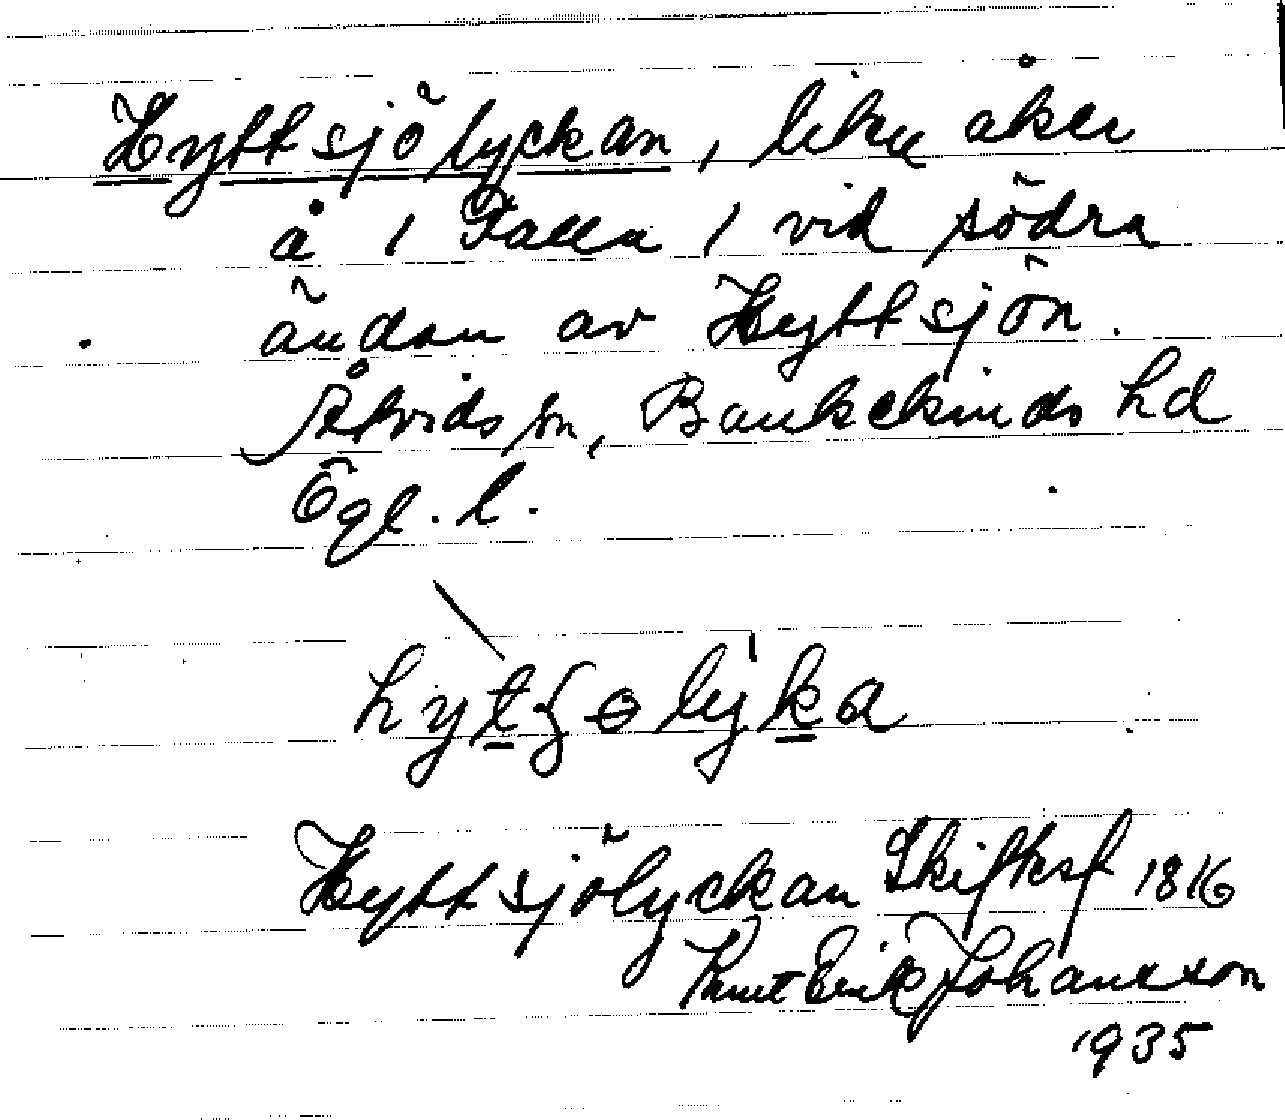 Hyttsjölyckan, liten åker
å 1 Falla 1 vid södra
ändan av Hyttsjön.
Åtvids sn, Bankekinds hd
Ögl. l.
hytʃɵlyka
Hyttsjölyckan Skifteskf 1816
Knut Erik Johansson
1935